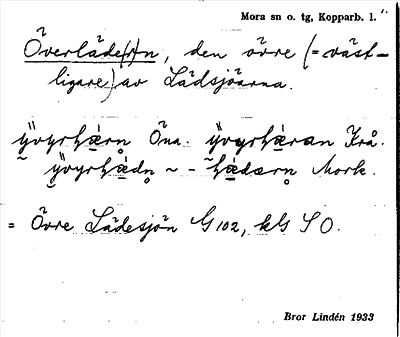 Mora sn o. tg, Kopparb. l.
Överläde(r)n, den övre (= väst-
ligare) av Lädsjöarna.
ÿvyrhæ̀rn Öna. ÿvyrhæ̀ran Krå.
ÿvyrhæ̀dn ~ - hæ̀dærn Mork.
= Övre Lädesjön G 102, kG SO.
Bror Lindén 1933